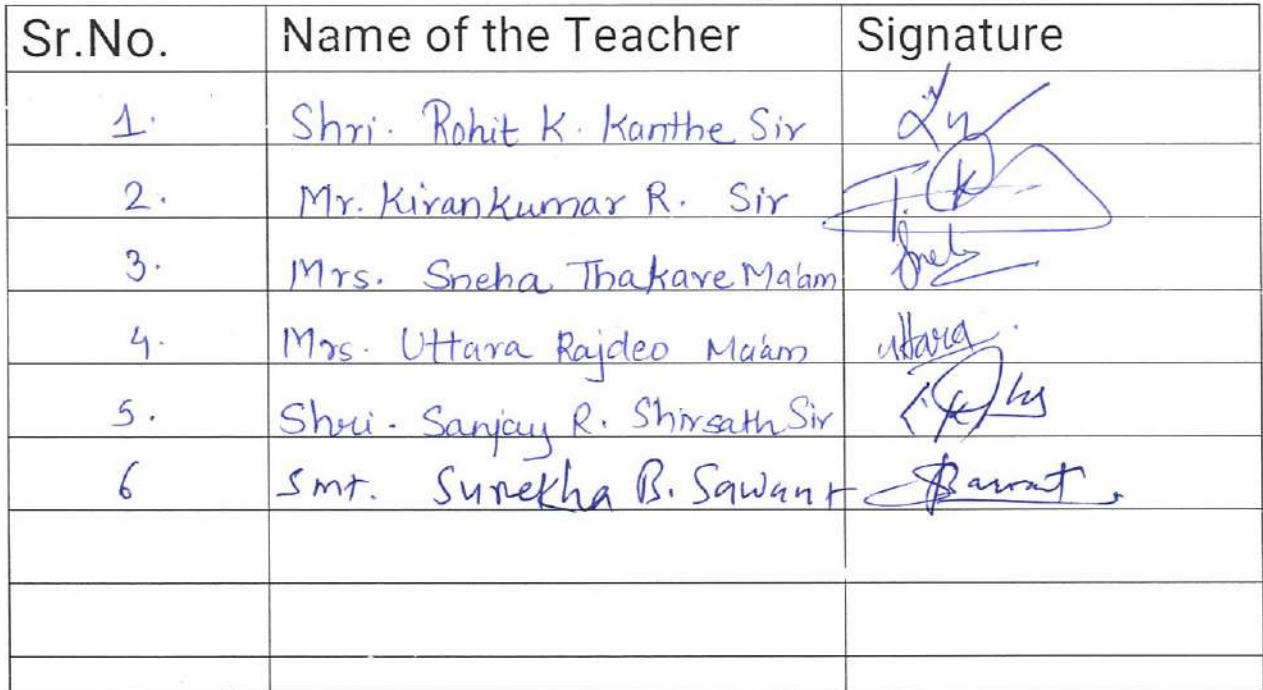 Sr.No. Name of the Teacher Signature
1. Shri. Rohit K. Kanthe Sir
2. Mr. Kirankumar R. Sir
3. Mrs. Sneha Thakare Ma'am Sneh
4. Mrs. Uttara Rajdeo Ma'am uttara.
5. Shri. Sanjay R. Shirsath Sir
6 Smt. Surekha B. Sawant SBawant